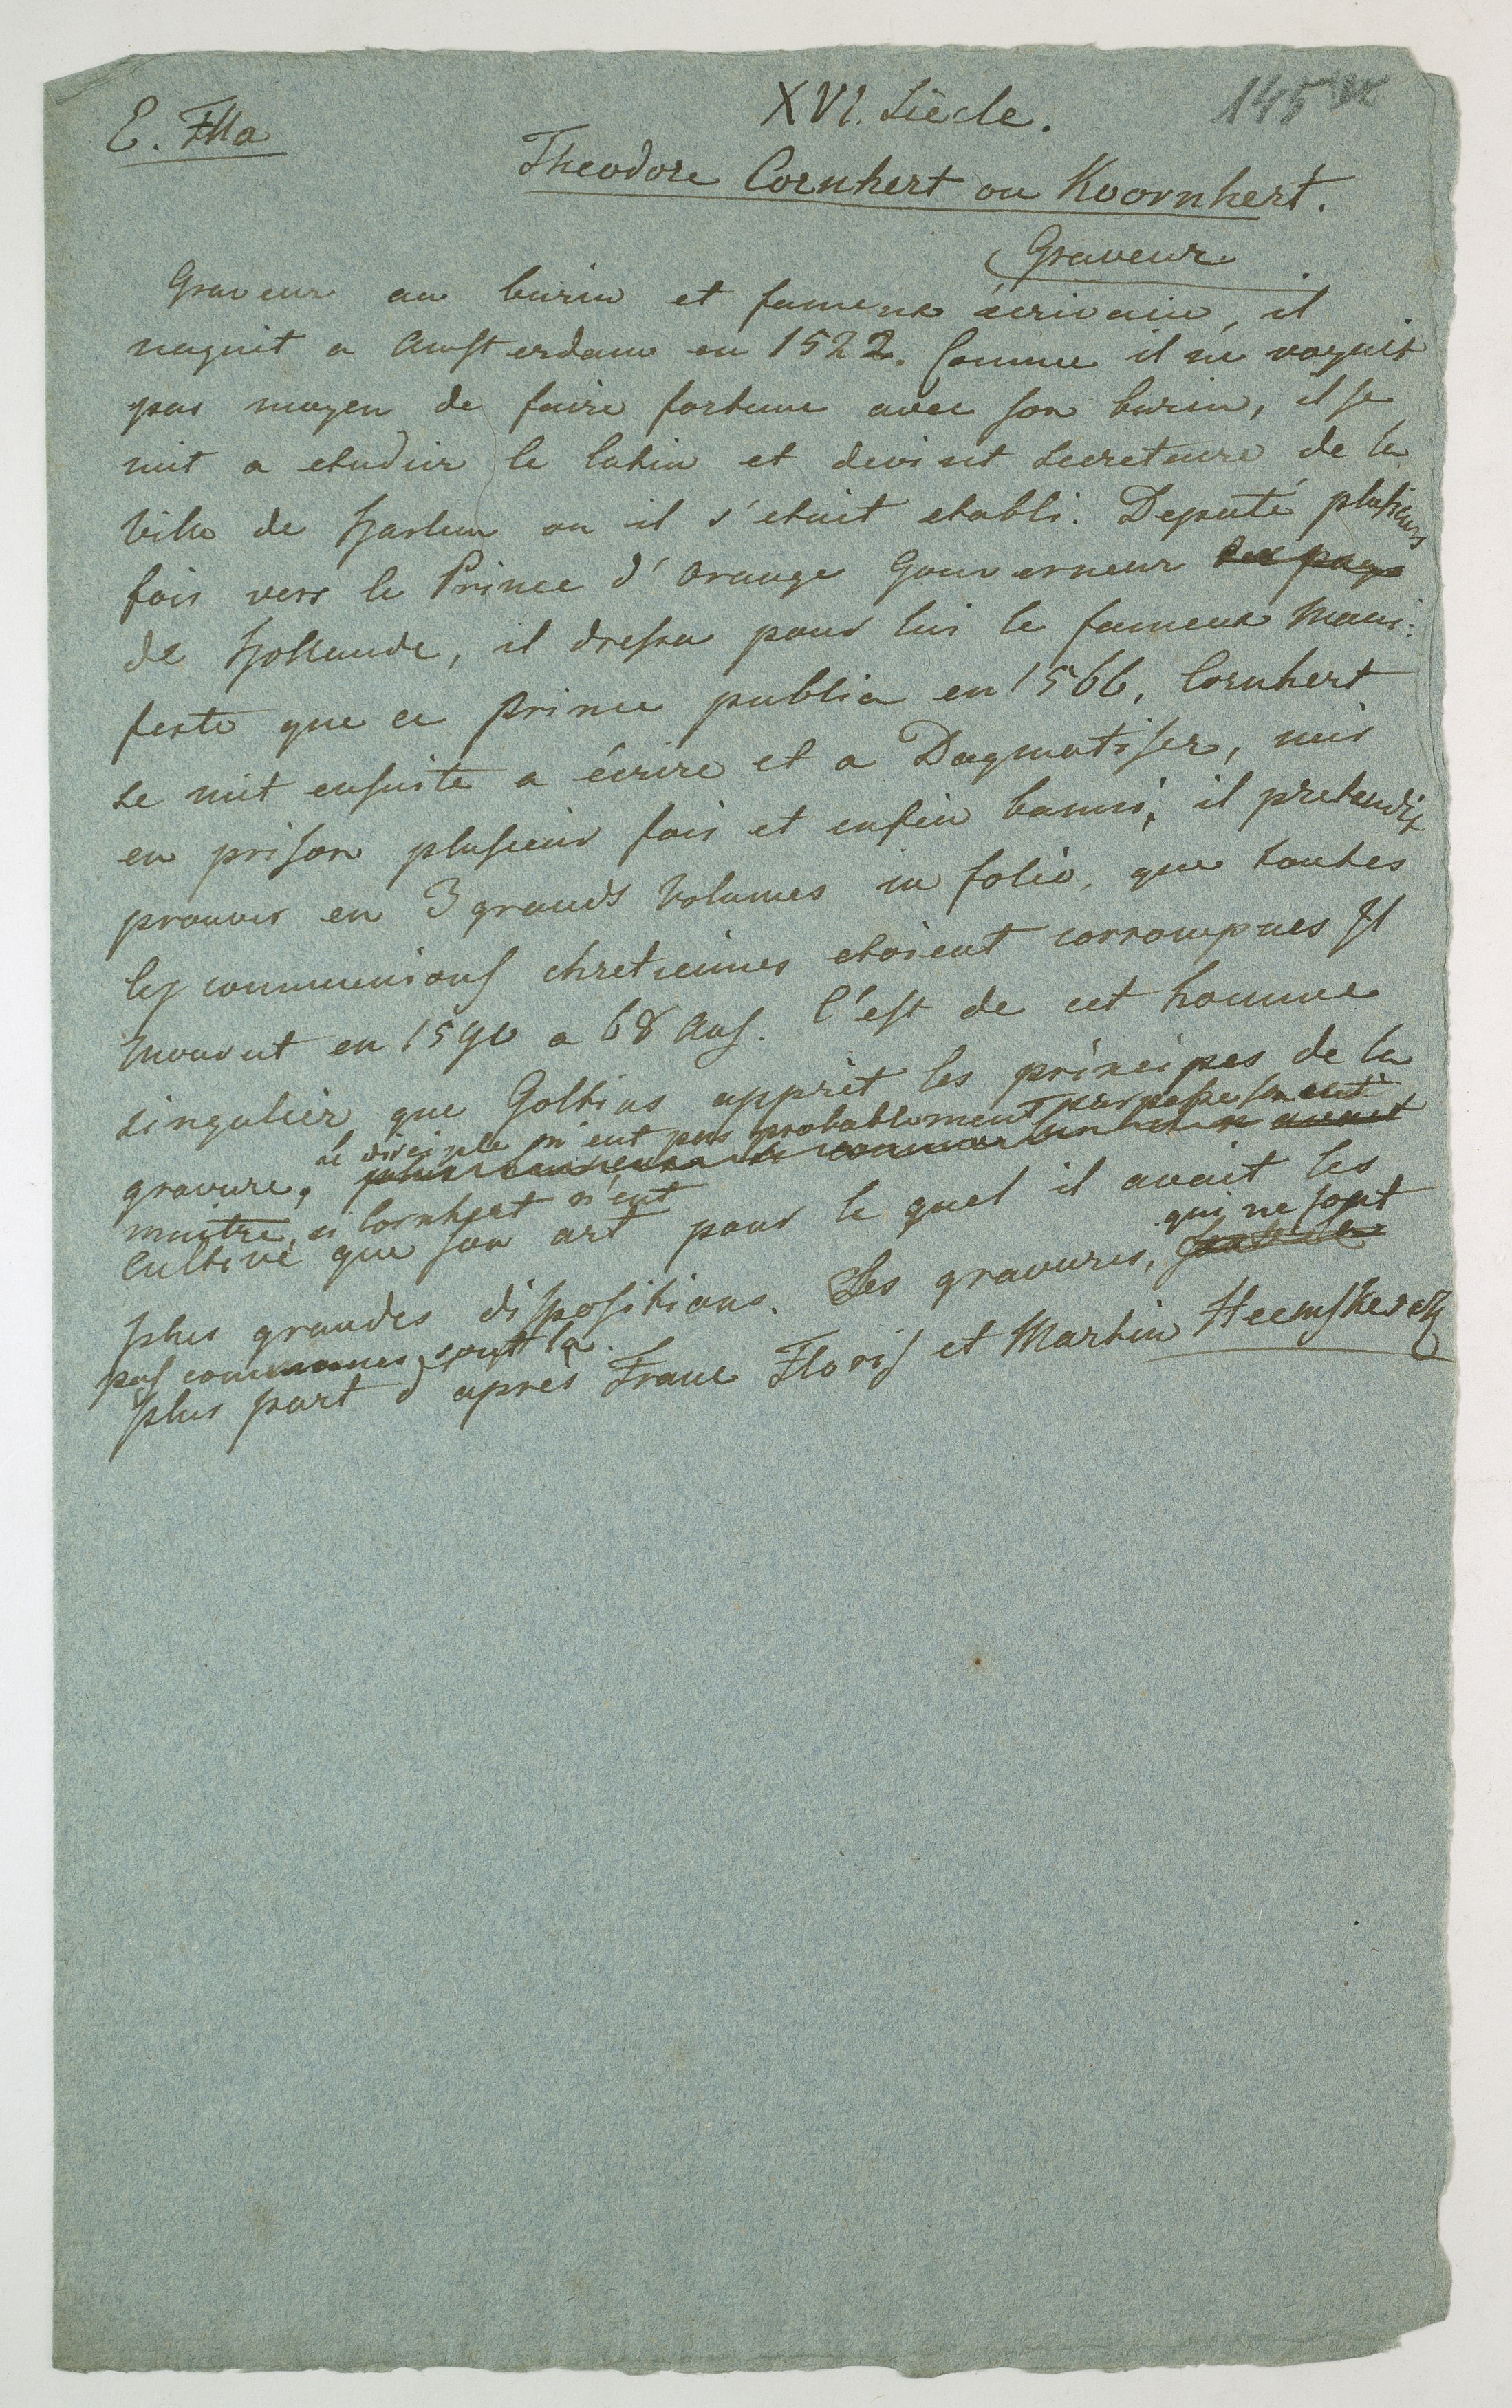 XVI. Siècle.
145
E. IIIa
Theodore Cornhert ou Koornhert.
Graveur
Graveur au burin et fameux écrivain, il
naquit a Amsterdam en 1522. Comme il ne voyait
pas moyen de faire fortune avec son burin, il se
mit a etudier le latin et devint Secretaire de la
Ville de Harlem ou il s'etait etabli. Deputé plusieurs
fois vers le Prince d'Orange Gouverneur des pays
de Hollande, il dressa pour lui le fameux Mani:
feste que ce prince publia en 1566, Cornhert
se mit ensuite a écrire et a Dogmatiser, mis
en prison plusieurs fois et enfin banni, il pretendit
prouver en 3 grands Volumes in folio, que toutes
les communions chretiennes etoient corrompues Il
mourut en 1590 a 68 ans. C'est de cet homme
singulier que Goltius apprit les principes de la
le disciple n'eut pas probablement surpassé son
gravure,
maitre, si Cornhert n'eut
Cultivé que son art pour le quel il avait les
qui ne sont
plus grandes dispositions. Ses gravures,
pas communes, sont la
plus part d'apres Franc Floris et Martin Heemskerck